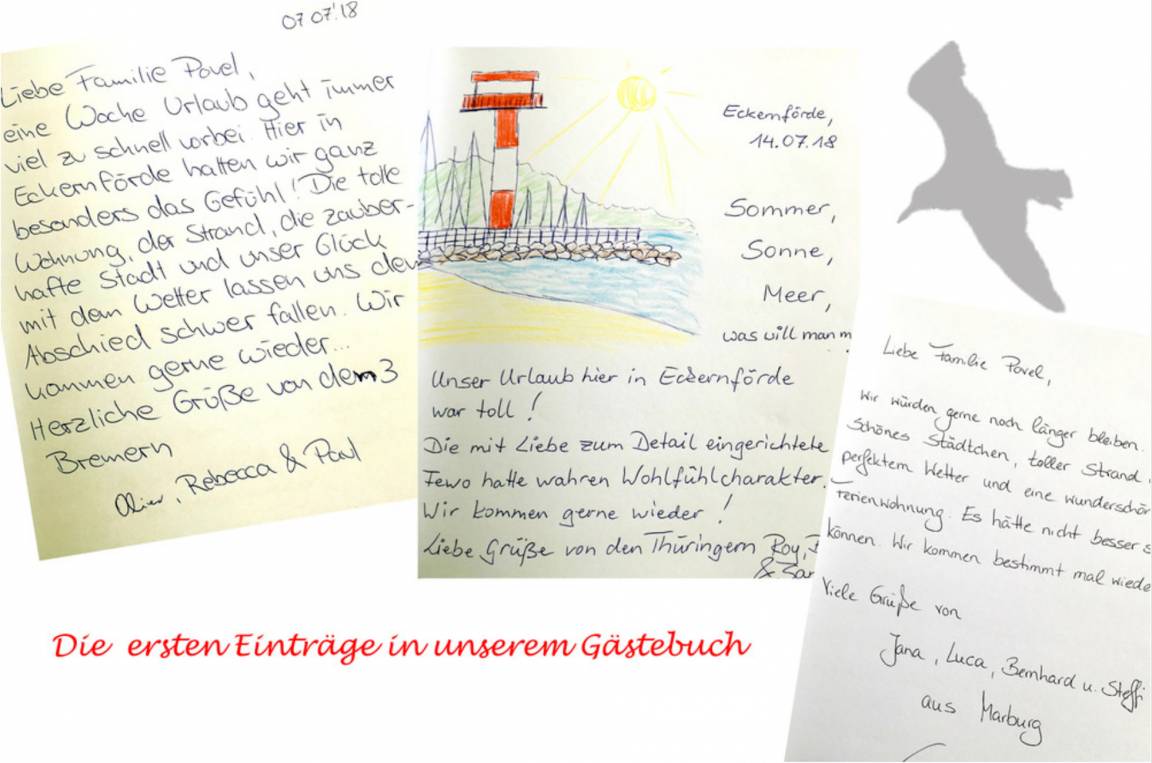 07.07.'18
Liebe Familie Povel,
eine Woche Urlaub geht immer
viel zu schnell vorbei. Hier in
Eckernförde hatten wir ganz
besonders das Gefühl! Die tolle
Wohnung, der Strand, die zauber-
hafte Stadt und unser Glück
mit dem Wetter lassen uns den
Abschied schwer fallen. Wir
kommen gerne wieder...
Herzliche Grüße von den 3
Bremern
Rebecca & Paul
Eckernförde,
14.07.18
Sommer,
Sonne,
Meer,
was will man m
Unser Urlaub hier in Eckernförde
war toll!
Die mit Liebe zum Detail eingerichtete
Fewo hatte wahren Wohlfühlcharakter.
Wir kommen gerne wieder!
Liebe Grüße von den Thüringern Roy,
&
Liebe Familie Povel,
wir würden gerne noch länger bleiben.
Schönes Städtchen, toller Strand,
perfektem Wetter und eine wunderschön
Ferienwohnung. Es hätte nicht besser s
können. Wir kommen bestimmt mal wiede
Viele Grüße von
Jana, Luca, Bernhard u. Steffi
aus Marburg
Die ersten Einträge in unserem Gästebuch